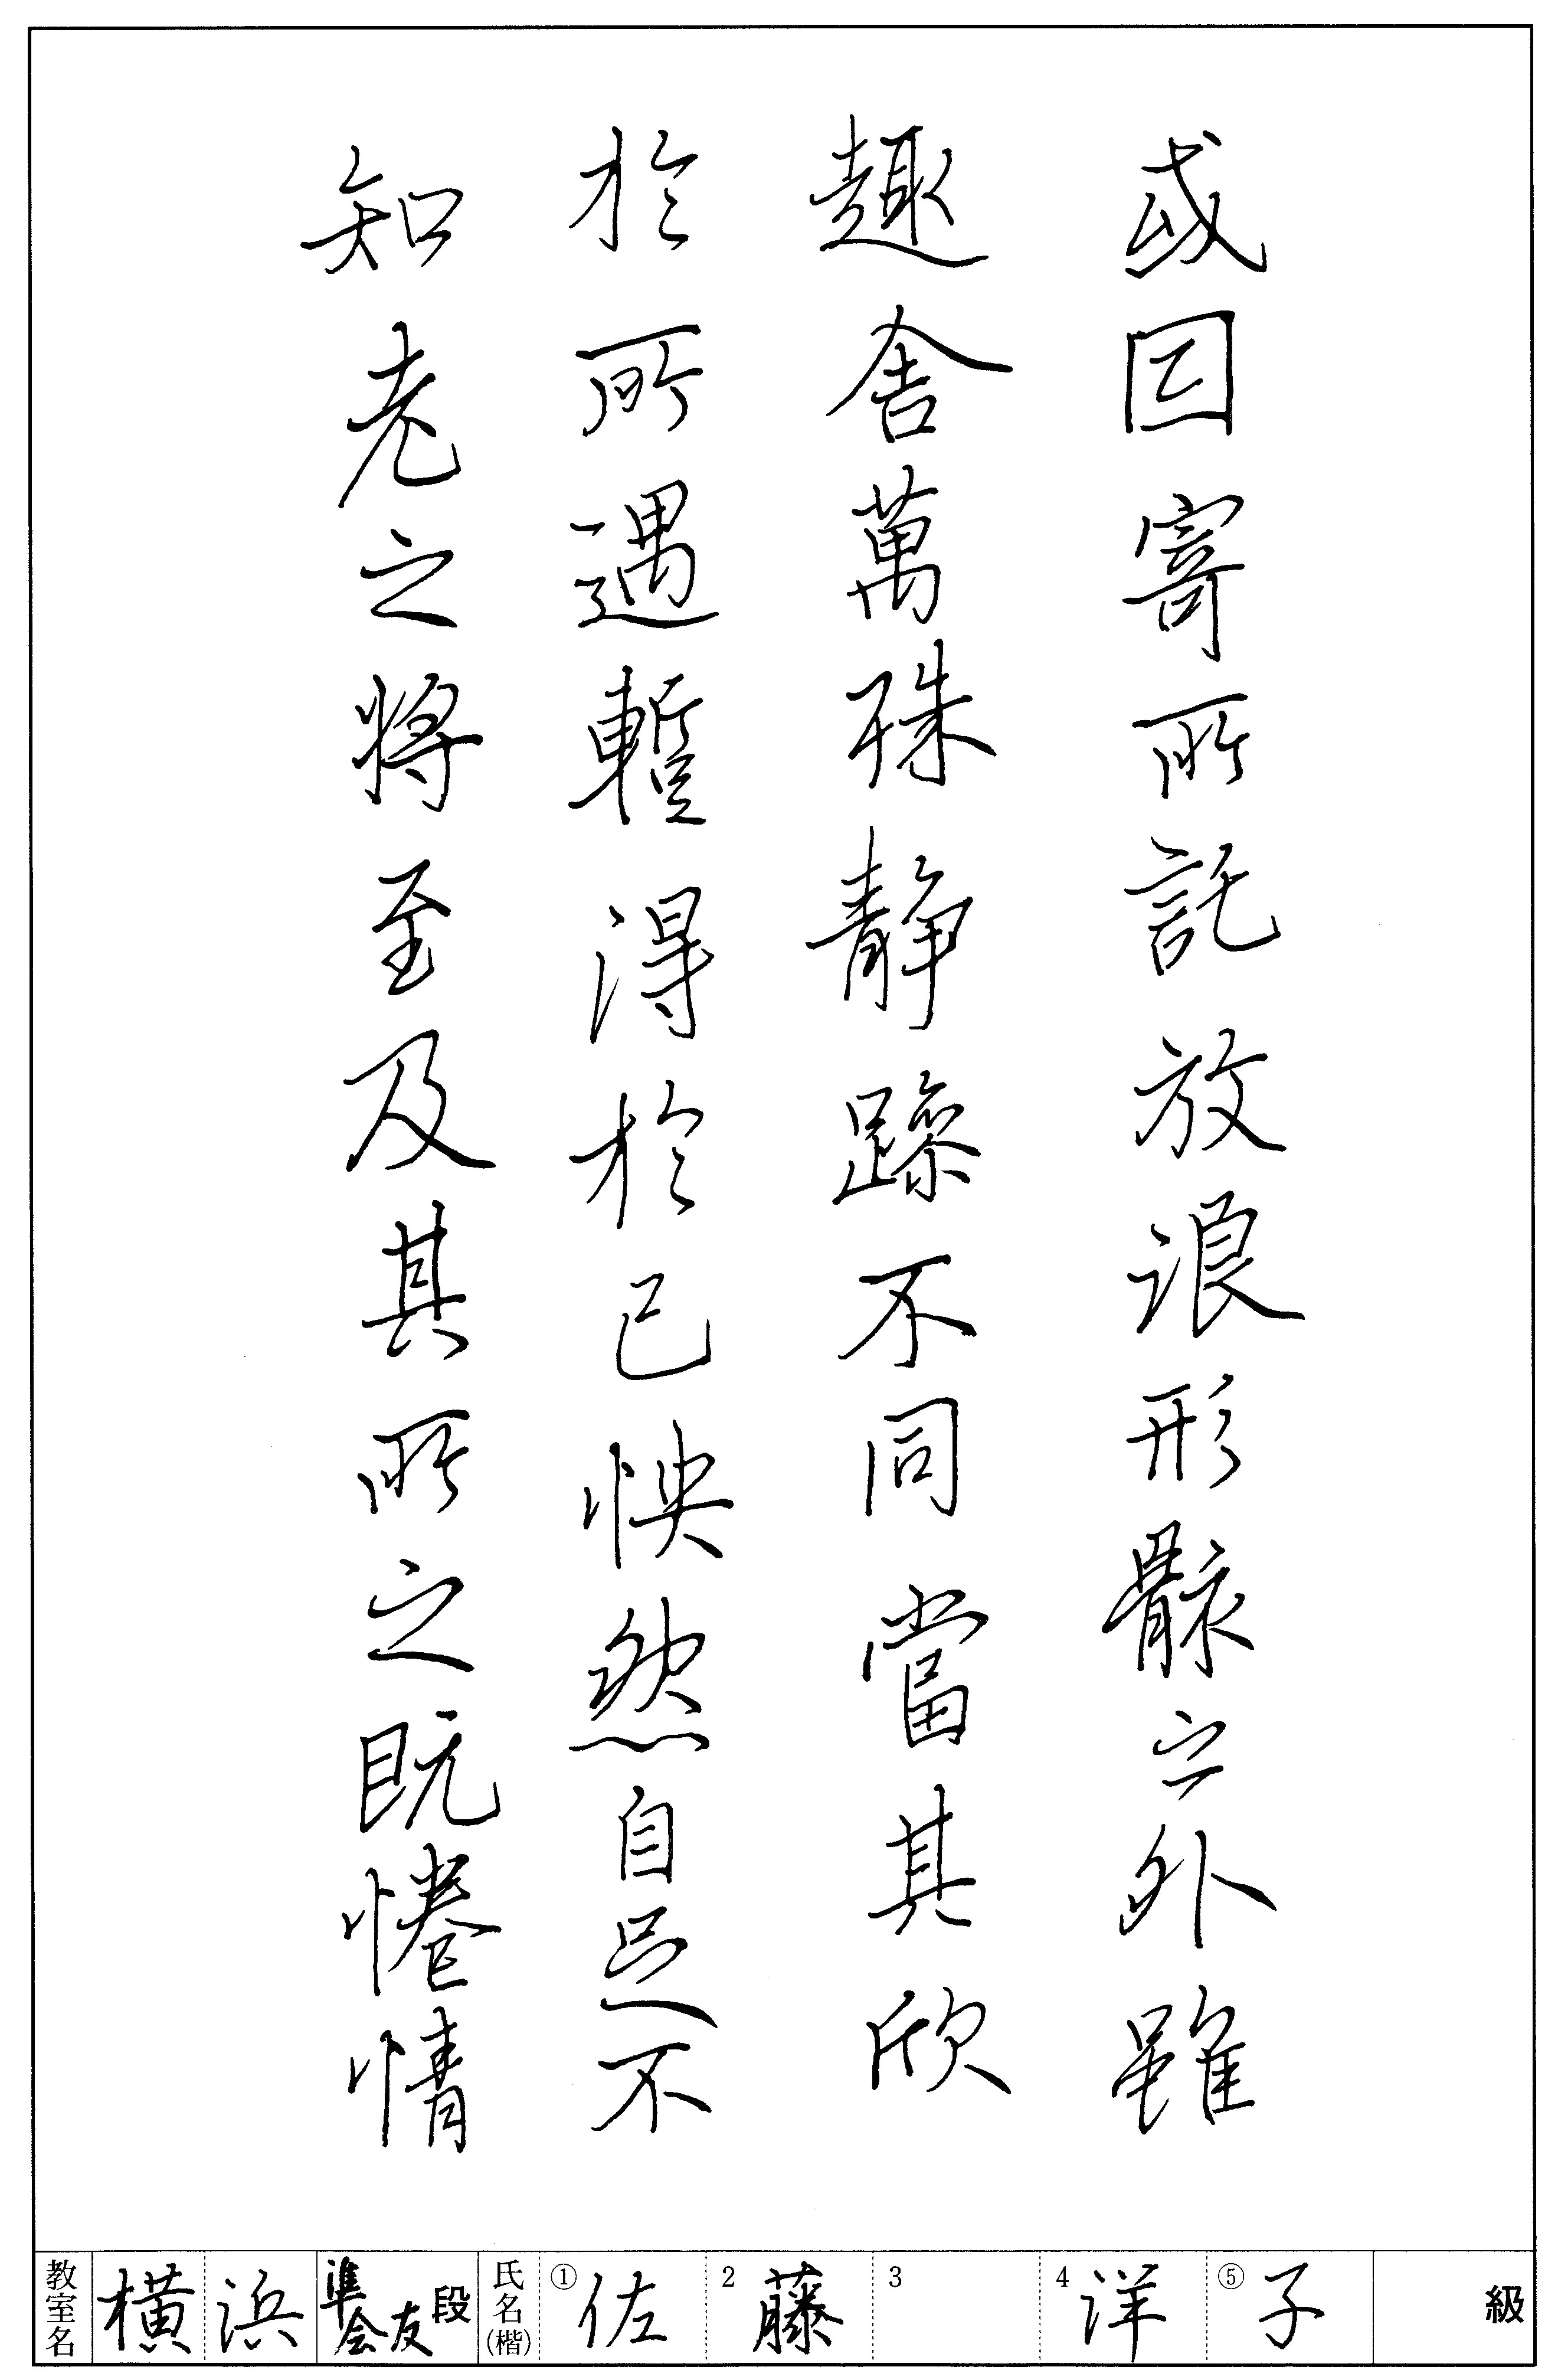 或因寄所託放浪形骸之外雖
趣舎萬殊静躁不同當其欣
於所遇蹔得於己怏然自足不
知老之将至及其所之既惓情
教室名 横浜 準会友 段 氏名(楷) ①佐 2藤 3 4洋 ⑤子 級